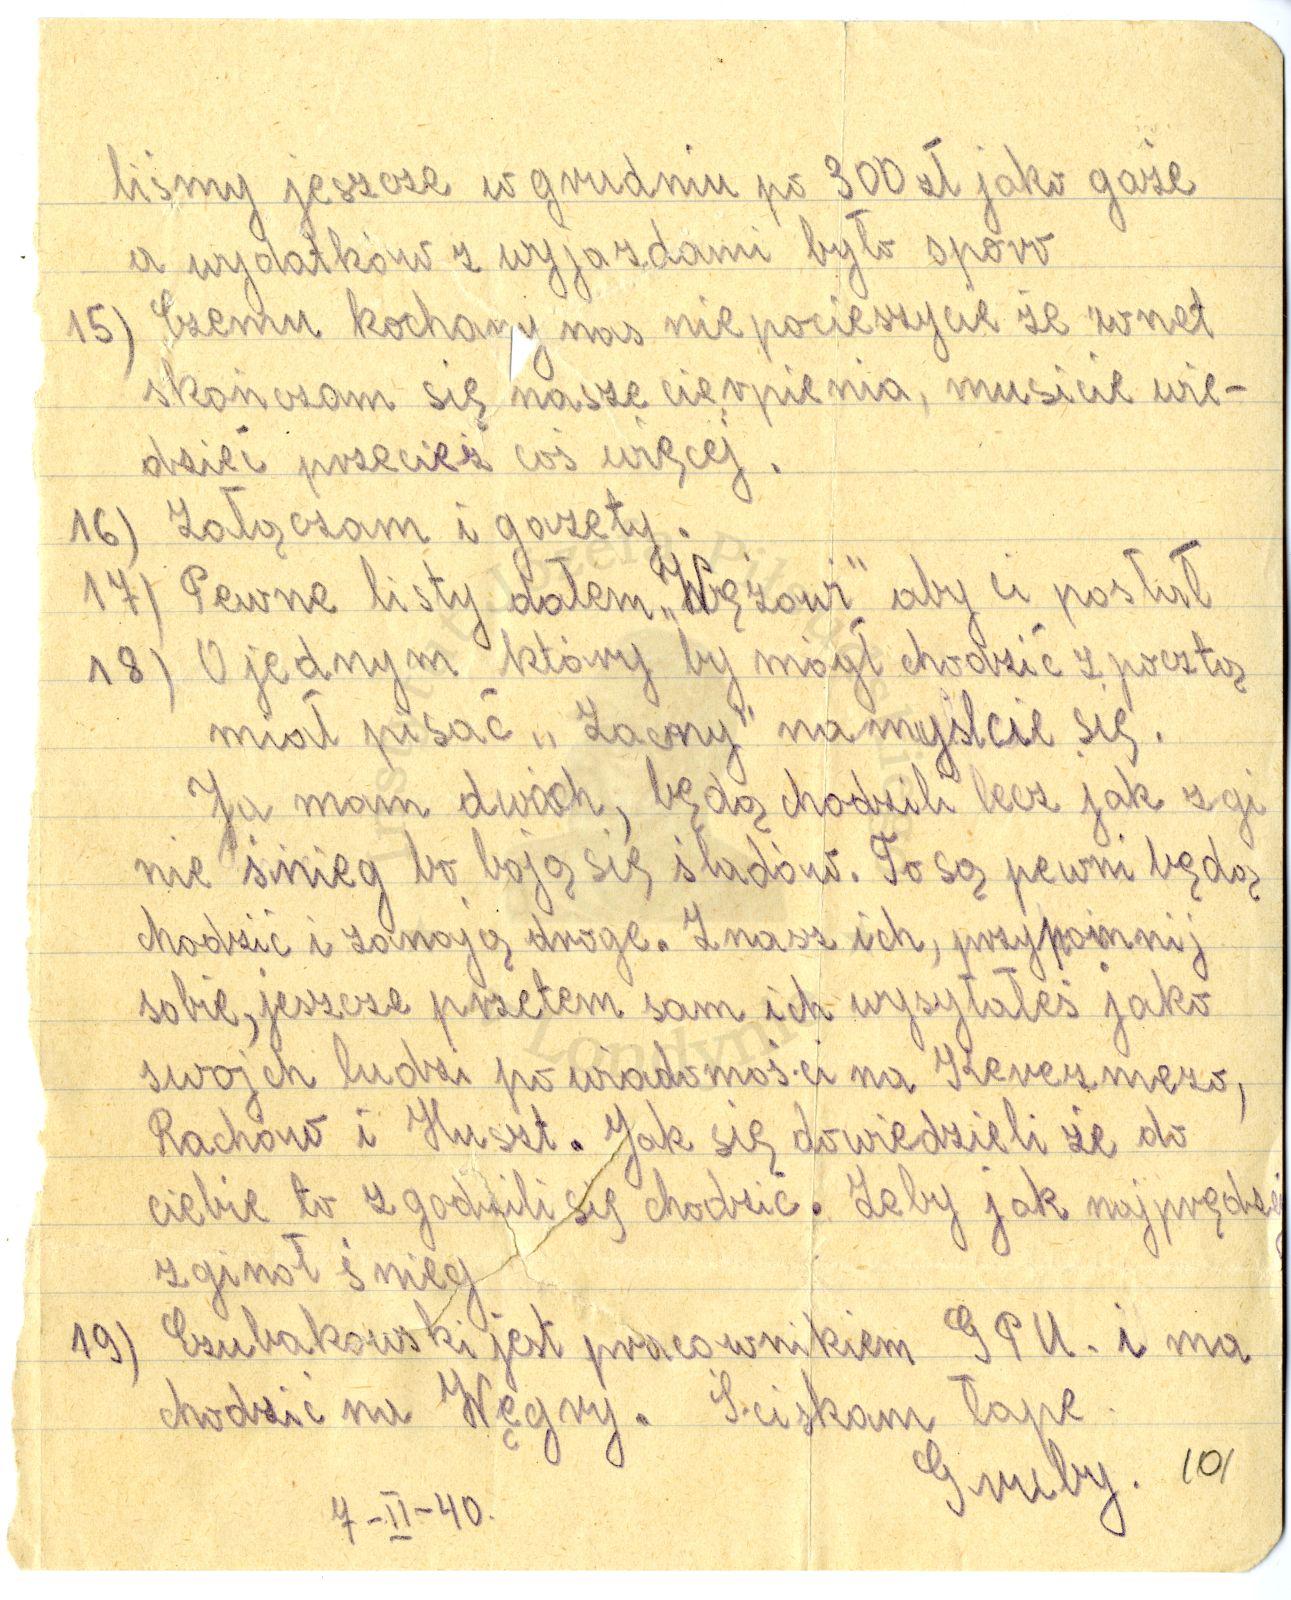 liśmy jeszcze w grudniu po 300 zł jako gaże
a wydatków z wyjazdami było sporo
15) Czemu kochany nas nie pocieszycie że wnet
skończam się nasze cierpienia, musicie wie-
dzieć przecież coś więcej.
16) Załączam i gazety.
17) Pewne listy dałem „Wężowi" aby ci posłał
18) O jednym który by mógł chodzić z pocztą
miał pisać „Zacny" namyślcie się.
Ja mam dwóch, będą chodzili lecz jak zgi
nie śnieg bo boją się śladów. To są pewni będą
chodzić i zanają droge. Znasz ich, przypoimnij
sobie, jeszcze przetem sam ich wysyłałeś jako
swojch ludzi po wiadomości na Kerezmezo,
Rachow i Huszt. Jak się dowiedzieli że do
ciebie to zgodzili się chodzić. Żeby jak najprędzej
zginoł śnieg
19) Czubakowski jest pracownikiem GPU. i ma
chodzić na Węgry. Ściskam łape.
Gruby. 101
7-II-40.
Instytut Józefa Piłsudskiego
w Londynie